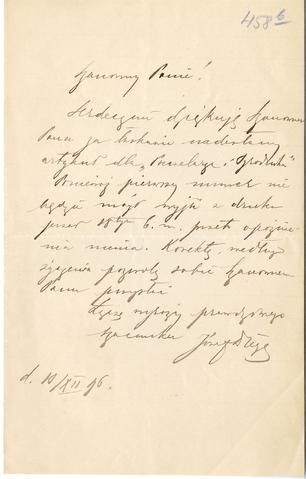 458 6
Szanowny Panie!
Serdecznie dziękuję Szanownemu
Panu za łaskawie nadesłany
artykuł dla "Ogrodnika"
Ponieważ pierwszy numer nie
będzie mógł wyjść z druku
przed b. m. przeto
niema. Korektę, według
życzenia pozwolę sobie Szanownemu
Panu przysłać
Łączę wyrazy prawdziwego
szacunku Józef
d. 10/XII 96.